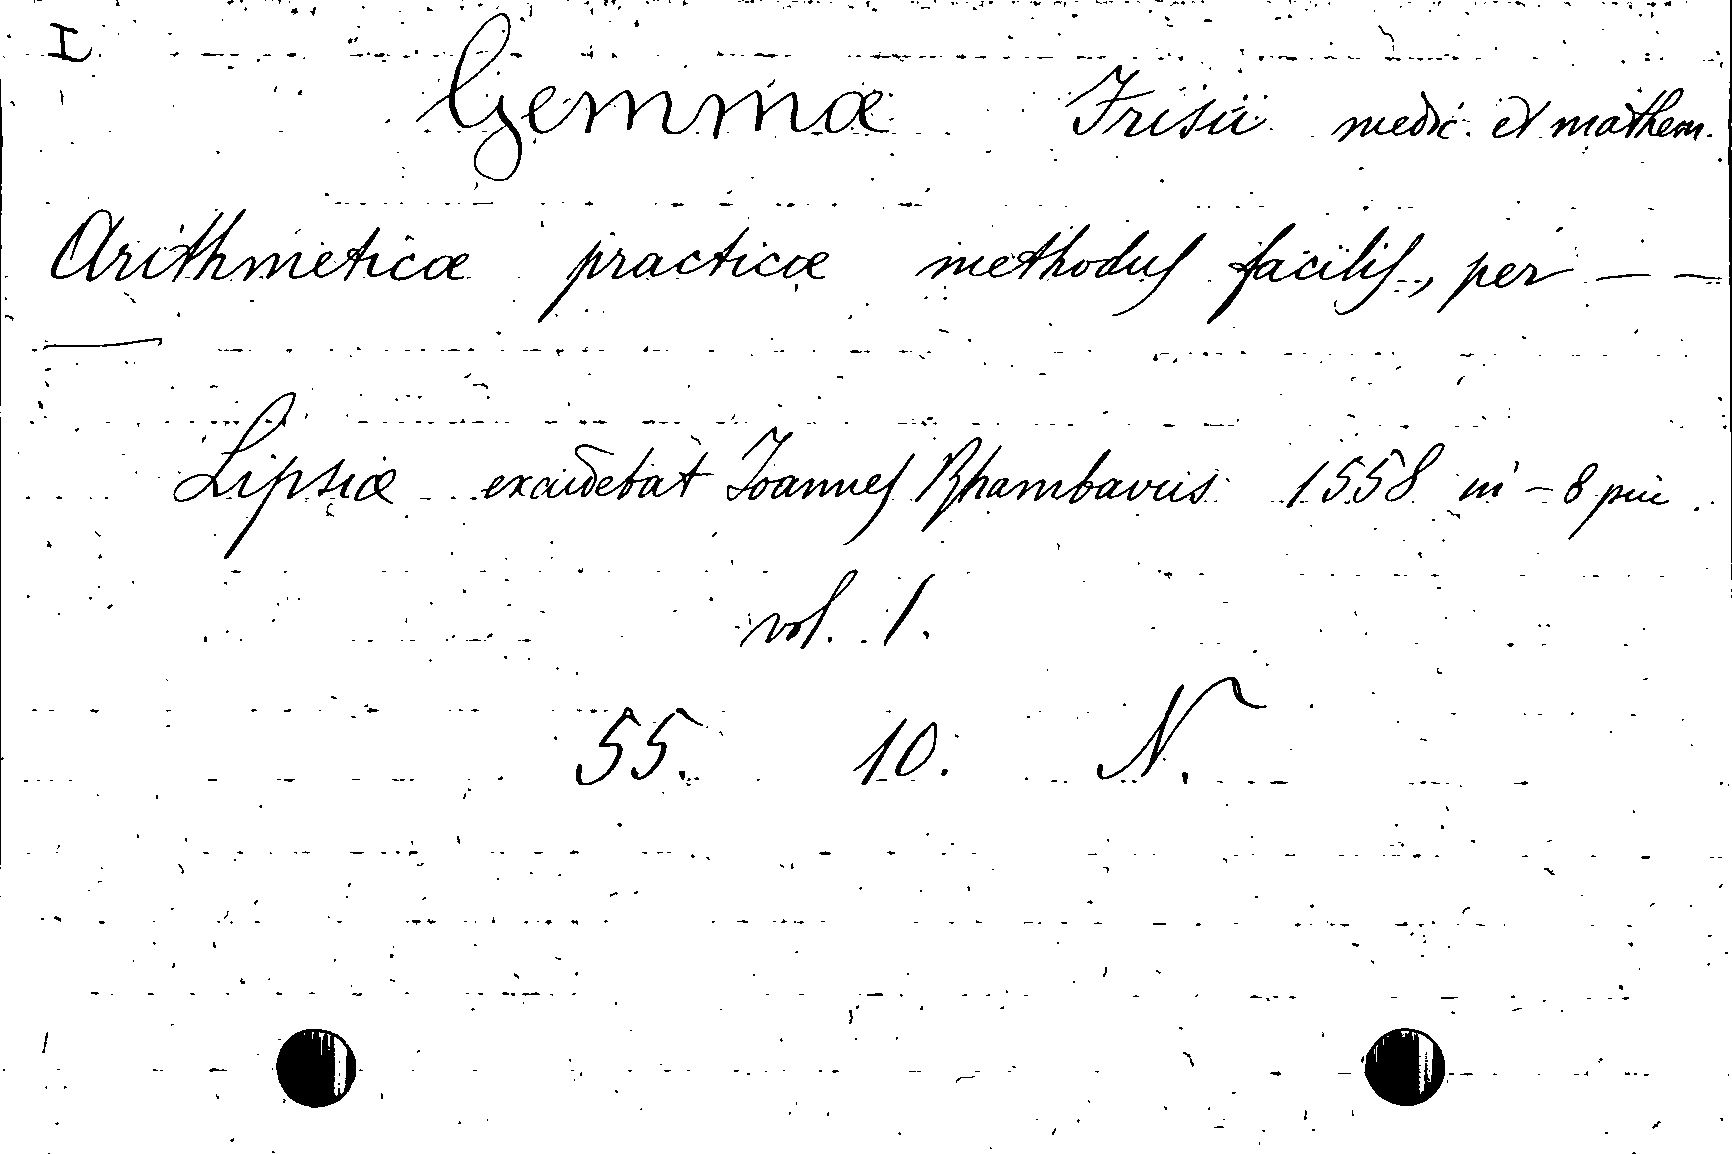 I
Gemmæ Frisii medic. et mathem.
Arithmeticæ practicæ methodus facilis, per — —
—
Lipsiæ excudebat Joannes Rhambavus 1558 in - 8 pic.
vol. 1.
55. 10. N.